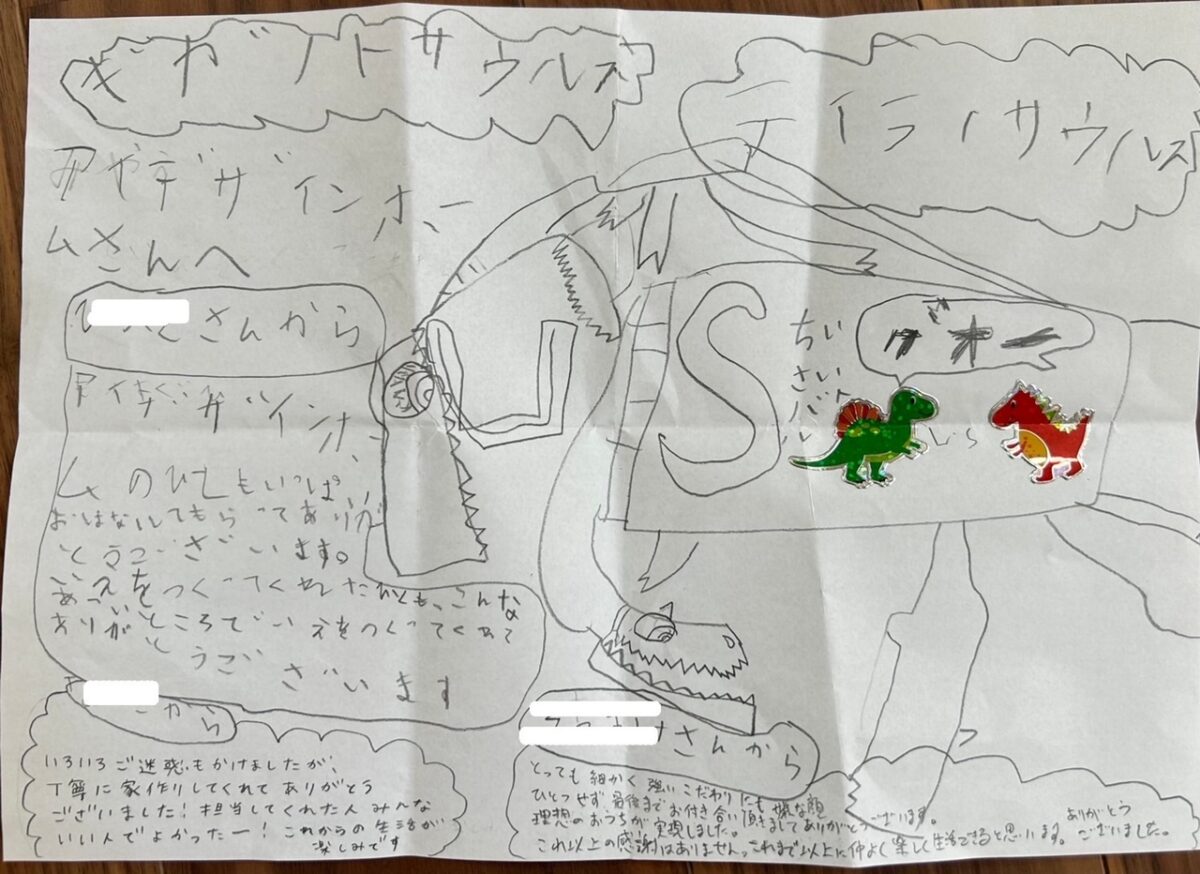 ギガノトサウルス
ティラノサウルス
デザインホー
ムさんへ
さんから
ザインホー
ムのひともいっぱい
おはなししてもらってありが
とうございます。
いえをつくってくれた
こんな
あついところでいえをつくってくれて
ありがと
うございます
S
ちい
さい
バトル
ガオー
VS
から
いろいろご迷惑もかけましたが、
丁寧に家作りしてくれてありがとう
ございました！担当してくれた人みんな
いい人でよかったー！これからの生活が
楽しみです
さんから
とっても細かく強いこだわりにも嫌な顔
ひとつせず最後までお付き合い頂きましてありがとうございます。
理想のおうちが実現しました。
これ以上の感謝はありません。これまで以上に仲よく楽しく生活できると思います。
ありがとう
ございました。